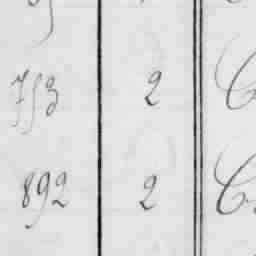 753 2 C
892 2 C